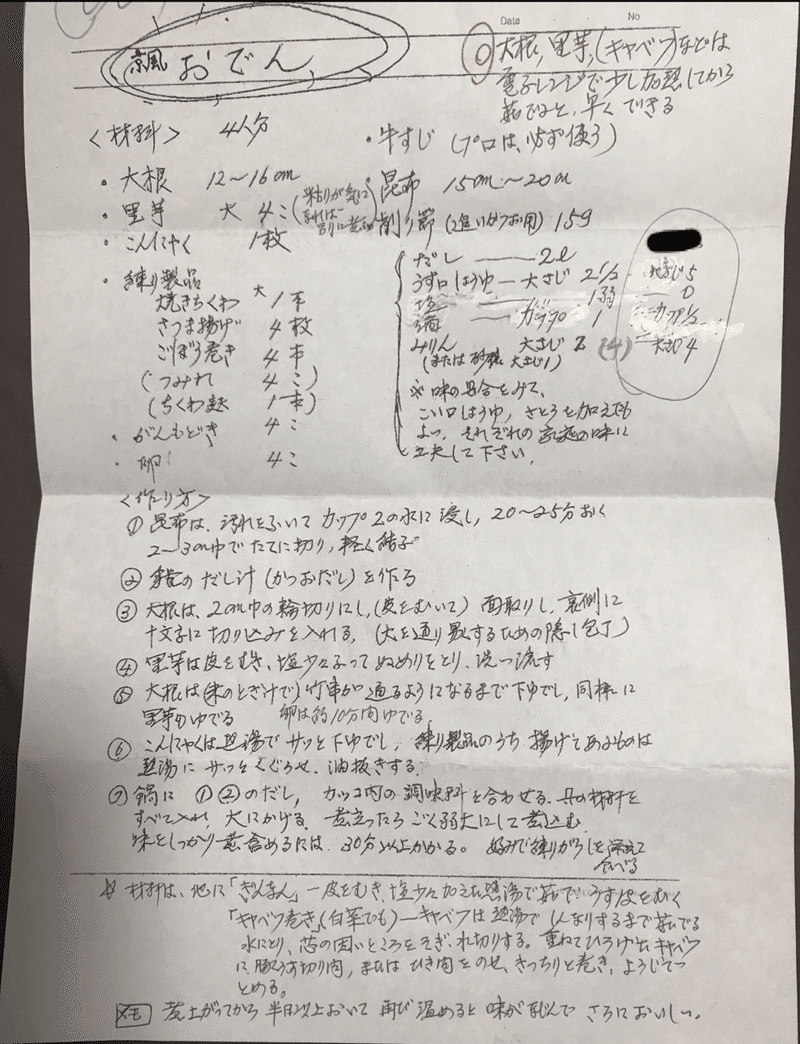 Date No
京風 おでん
大根,里芋,(キャベツ)などは
電子レンジで少し加熱してから
茹でると、早くできる
<材料> 4人分
・牛すじ (プロは、必ず使う)
・大根 12～16cm
・昆布 15cm～20cm
・里芋 大 4こ (粘りが気になれば 別に煮る)
削り節 (追いがつお用) 15g
・こんにゃく 1枚
・練り製品
焼きちくわ 大 1本
さつま揚げ 4枚
ごぼう巻き 4本
(つみれ 4こ)
(ちくわ麩 1本)
・がんもどき 4こ
・卵 4こ
だし ―― 2ℓ
うす口しょうゆ ― 大さじ 2 1/2
塩 ―― 1弱
酒 ―― カップ 1
みりん 大さじ 2 (4)
(または 砂糖 大さじ1)
※味の具合をみて、
こい口しょうゆ, さとうを加えても
よい. それぞれの家庭の味に
工夫して下さい.
大さじ5
0
カップ1/2
大さじ4
<作り方>
① 昆布は、汚れをふいて カップ2の水に浸し, 20～25分おく
2～3cm巾でたてに切り, 軽く結ぶ
② のだし汁 (かつおだし) を作る
③ 大根は、2cm巾の輪切りにし, (皮をむいて) 面取りし、裏側に
十文字に切り込みを入れる. (火を通り易くするための隠し包丁)
④ 里芋は皮をむき、塩少々ふって ぬめりをとり、洗い流す
⑤ 大根は(米のとぎ汁で)竹串が通るようになるまで下ゆでし, 同様に
里芋もゆでる 卵は約10分間ゆでる.
⑥ こんにゃくは熱湯でサッと下ゆでし, 練り製品のうち揚げてあるものは
熱湯にサッとくぐらせ、油抜きする.
⑦ 鍋に ①②のだし, カッコ内の調味料を合わせる. 具の材料を
すべて入れ, 火にかける. 煮立ったらごく弱火にして煮込む
味をしっかり煮含めるには、30分以上かかる。 好みで練りがらしを添えて
食べる
☆ 材料は、他に「ぎんなん」―皮をむき、塩少々加えた熱湯で茹で、うす皮をむく
「キャベツ巻き」(白菜でも)―キャベツは熱湯でしんなりするまで茹でる
水にとり、芯の固いところをそぎ、水切りする。重ねてひろげたキャベツ
に、豚うす切り肉, または ひき肉をのせ、きっちりと巻き, ようじでつ
とめる。
メモ 煮上がってから 半日以上おいて 再び温めると 味がなじんで さらにおいしい。